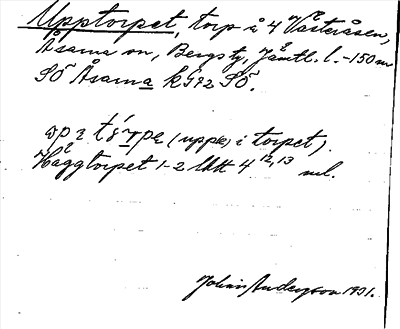 Upptorpet, torp å 4 Västeråsen,
Åsarna sn, Bergs tg, Jämtl. l. -150 m
SÖ Åsarna k 592 SÖ.
(uppe i torpet).
Häggtorpet 1-2 Utk 4 12,13 ml.
Johan Anderson 1931.